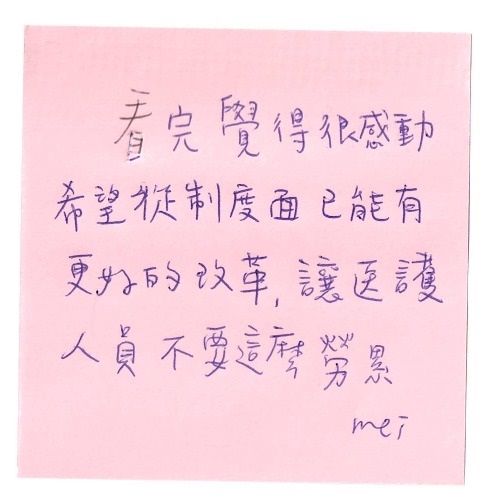 看完覺得很感動
希望從制度面已能有
更好的改革,讓医護
人員不要這麼勞累
mei